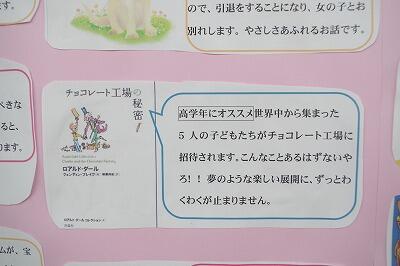 ので、引退をすることになり、女の子とお
別れします。やさしさあふれるお話です。
チョコレート工場の
秘密
ロアルド・ダール
ロアルド・ダール コレクション
高学年にオススメ世界中から集まった
5 人の子どもたちがチョコレート工場に
招待されます。こんなことあるはずないや
ろ！！夢のような楽しい展開に、ずっとわ
くわくが止まりません。
す。
べきな
ると、
ります。
ムが、宝